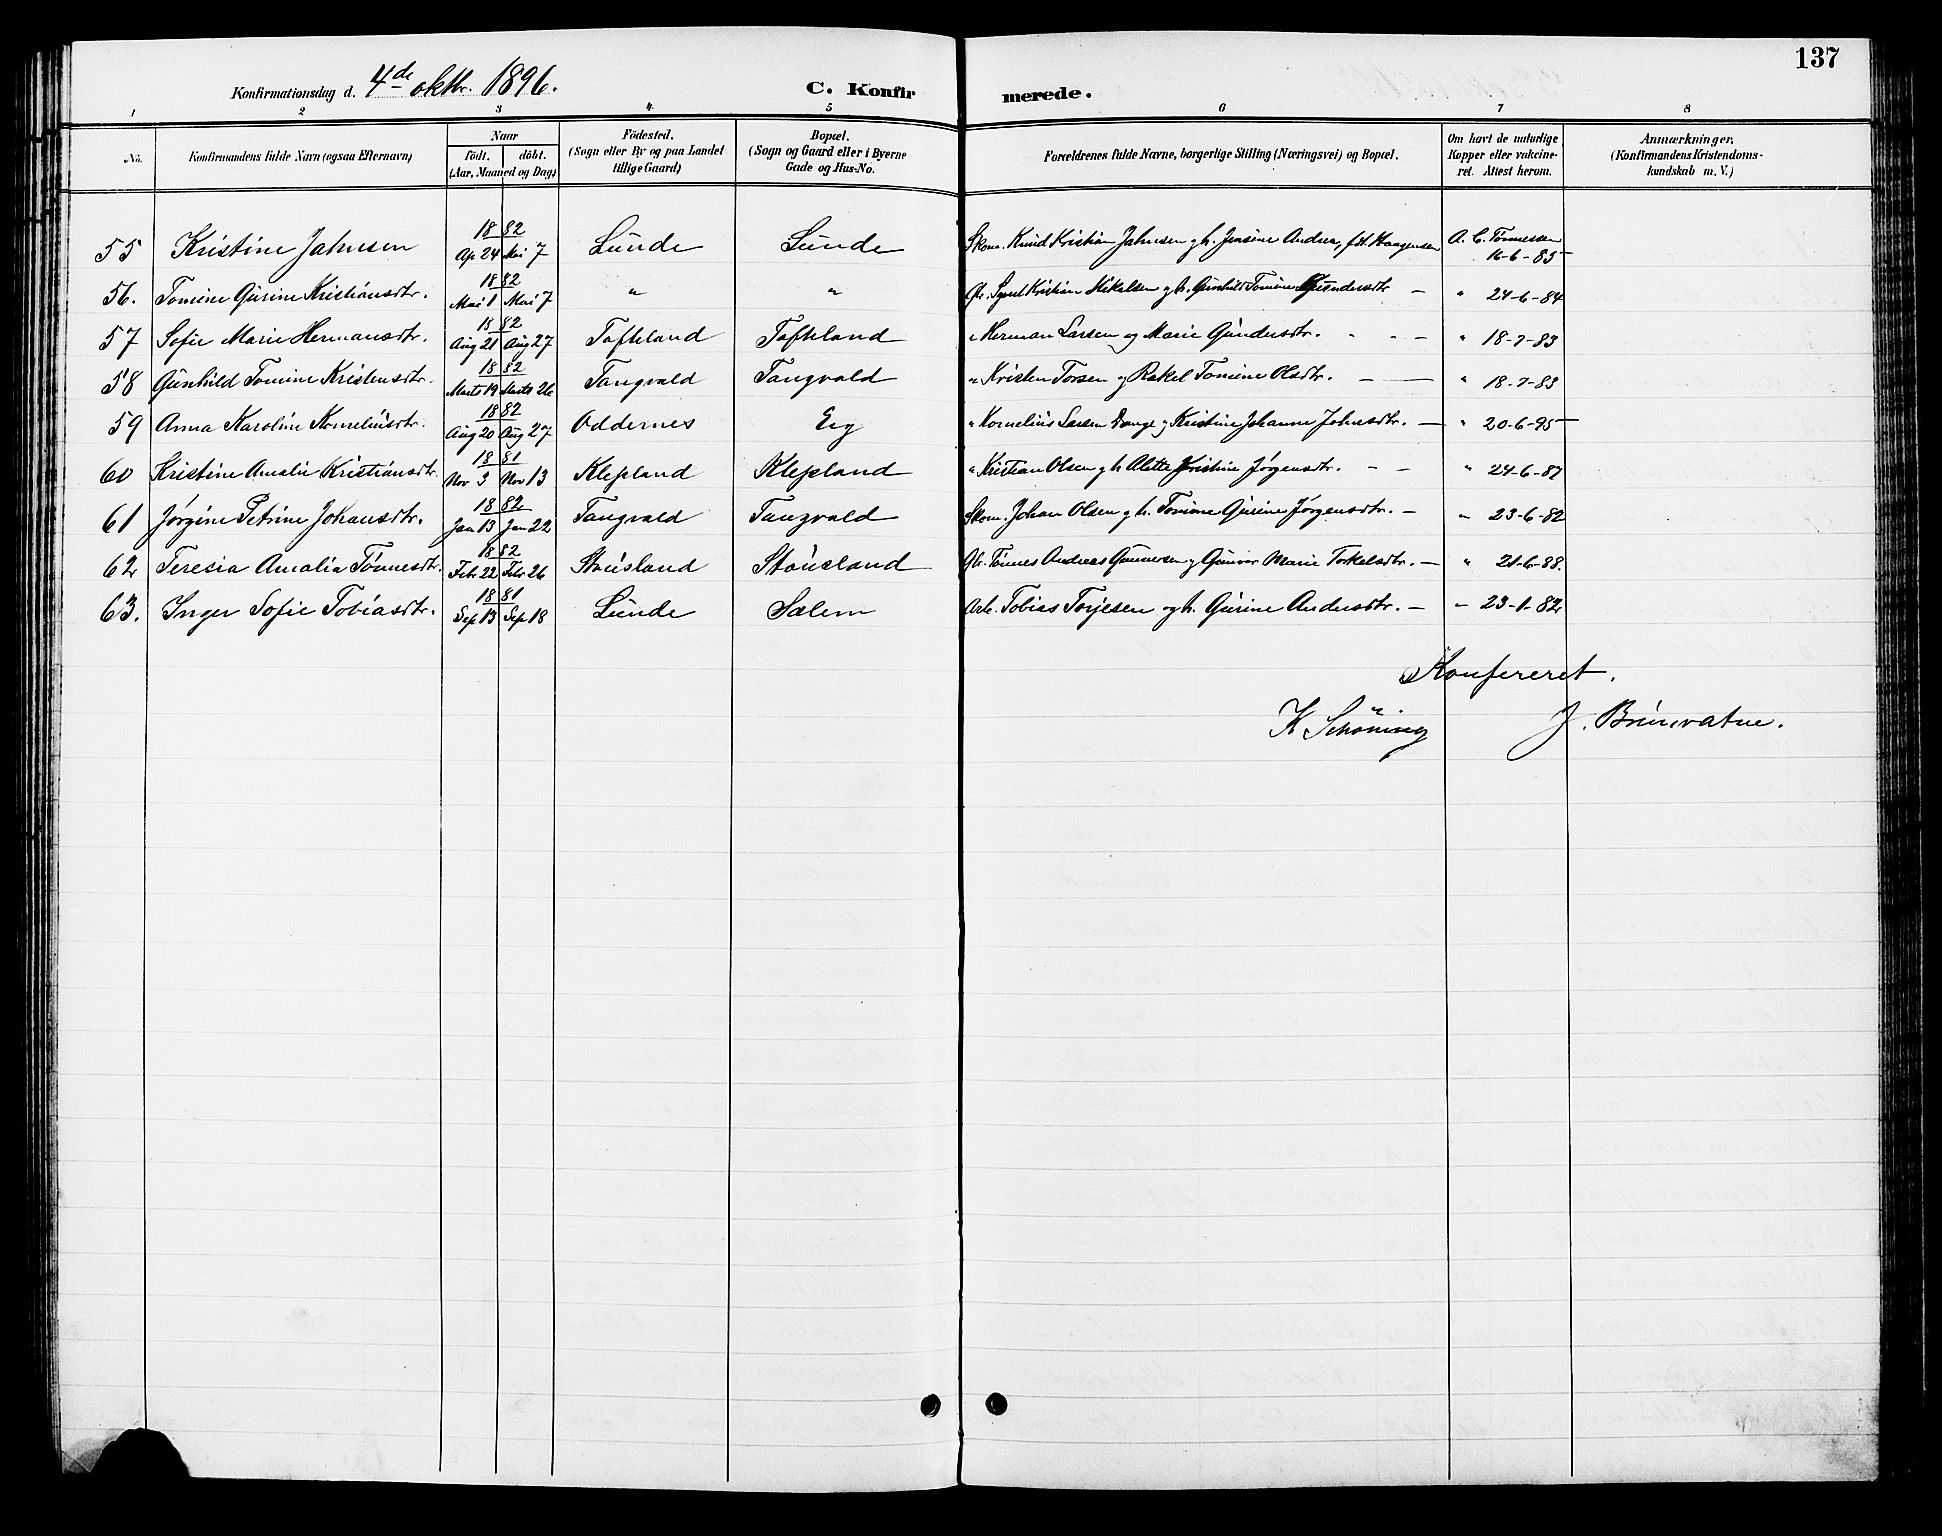 137
Konfirmationsdag d. 4de oktbr. 1896. C. Konfirmerede.
1 2 3 4 5 6 7 8
No. Konfirmandens fulde Navn (ogsaa Efternavn) Naar födt. döbt. (Aar, Maaned og Dag) Födested. (Sogn eller By og paa Landet tillige Gaard) Bopæl. (Sogn og Gaard eller i Byerne Gade og Hus-No. Forældrenes fulde Navne, borgerlige Stilling (Næringsvei) og Bopæl. Om havt de naturlige Kopper eller vakcineret. Attest herom. Anmærkninger. (Konfirmandens Kristendomskundskab m. V.)
55 Kristine Jahnsen 1882 Ap 24 Mai 7 Lunde Lunde Skom. Knud Kristian Jahnsen og h. Jensine Andrea, fdt. Haagensen A. C. Tønnessen 16-6-85
56. Tomine Gurine Kristiansdtr. 1882 Mai 1 Mai 7 " " Kristian Mikalsen og h. Gunhild Tomine Gundersdtr — " 24-6-84
57 Sofie Marie Hermansdtr. 1882 Aug 21 Aug 27 Tofteland Tofteland " Herman Larsen og Marie Gundersdtr. - - — " 18-7-83
58 Gunhild Tomine Kristensdtr. 1882 Marts 19 Marts 26 Tangvald Tangvald " Kristen Torsen og Rakel Tomine Olsdtr. — — " 18-7-83
59 Anna Karoline Korneliusdtr. 1882 Aug 20 Aug 27 Oddernes Eeg " Kornelius Larsen Dange og Kristine Johanne Johnsdtr. — " 20-6-95
60 Kristine Amalie Kristiansdtr. 1881 Nov 3 Nov 13 Klepland Klepland " Kristian Olsen og h. Alette Kristine Jørgensdtr. - - " 24-6-87
61 Jørgine Petrine Johansdtr. 1882 Jan 13 Jan 22 Tangvald Tangvald Skom. Johan Olsen og h. Tomine Gurine Jørgensdtr. — " 23-6-82
62 Teresia Amalia Tønnesdtr. 1882 Febr. 22 Febr 26 Stousland Stousland Gbr. Tønnes Andreas Gunnersen og Gunvor Marie Torkelsdtr. — " 21-6-88.
63. Inger Sofie Tobiasdtr. 1881 Sep 13 Sep 18 Lunde Salem Arb. Tobias Torjesen og h. Gurine Andersdtr. — " 23-1-82
Konfereret.
K Schöning J. Brunvatne.